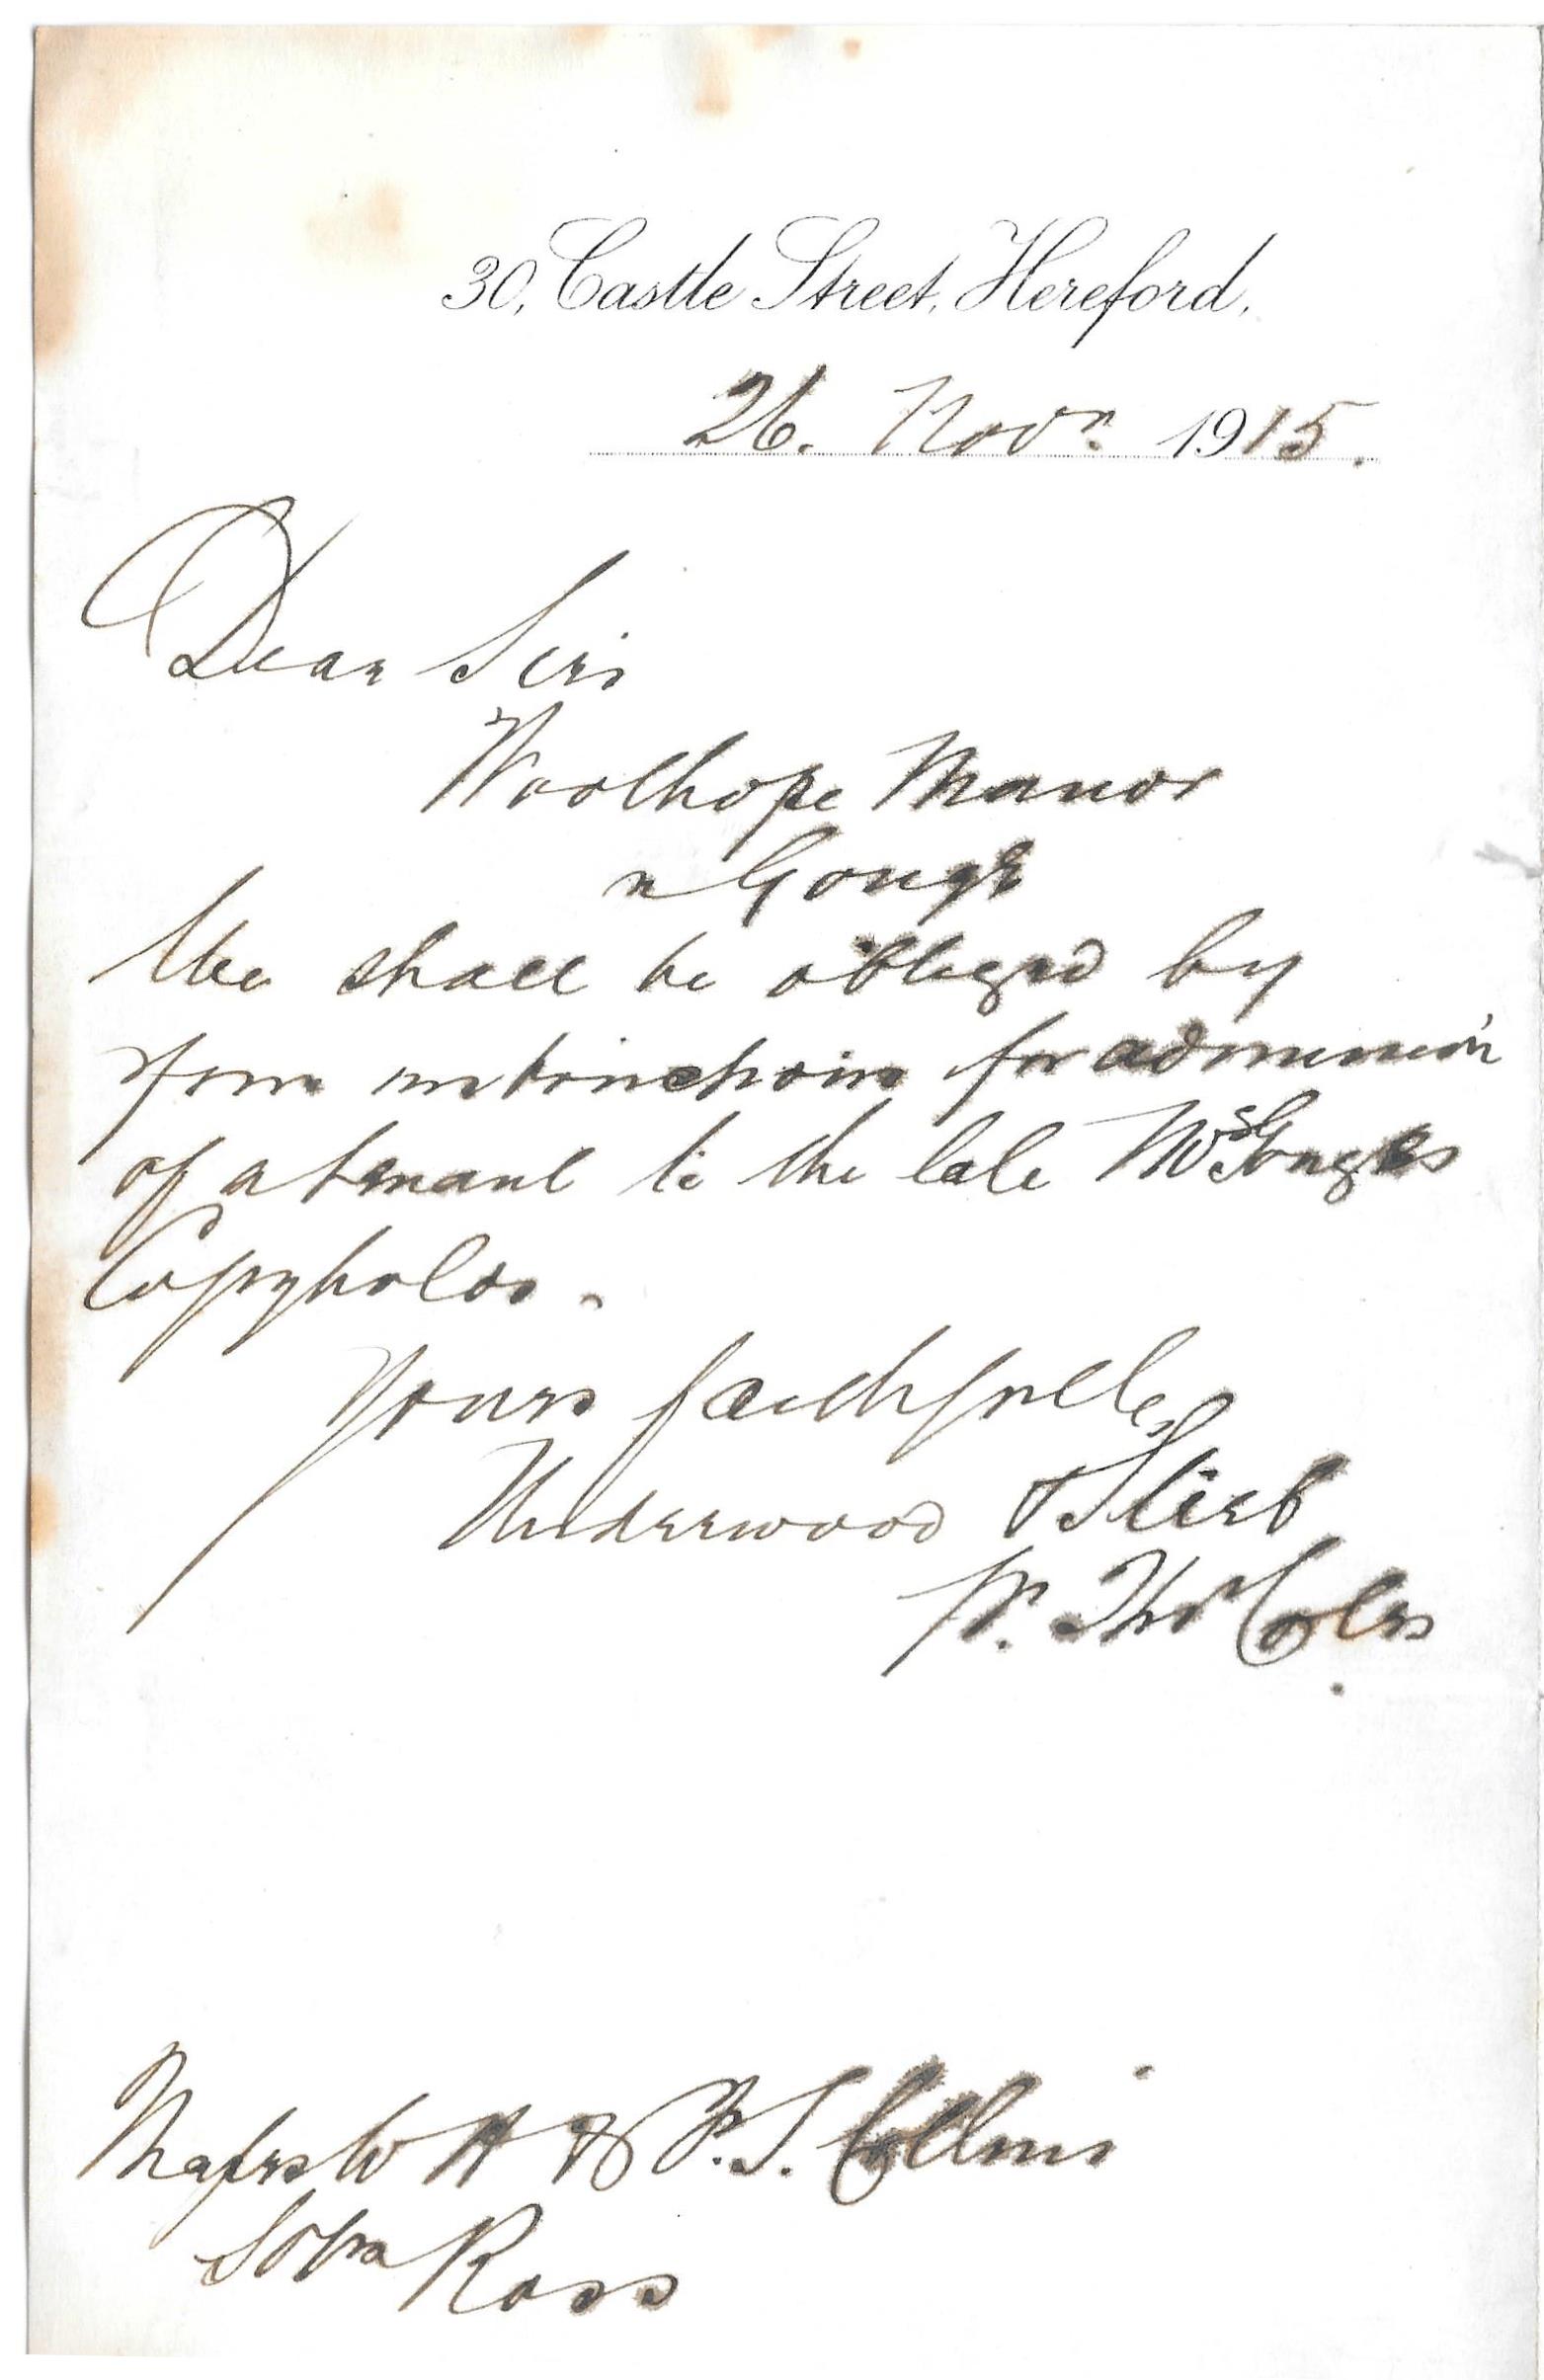 30, Castle Street, Hereford.
26. Novr. 1915.
Dear Sirs
Woolhope Manor
Gough
We shall be obliged by
your instructions for admission
of a tenant to the late Mrs Goughs
Copyholds.
Yours faithfully
Underwood & Steel
Messrs W H & F. S. Collins
Solrs Ross